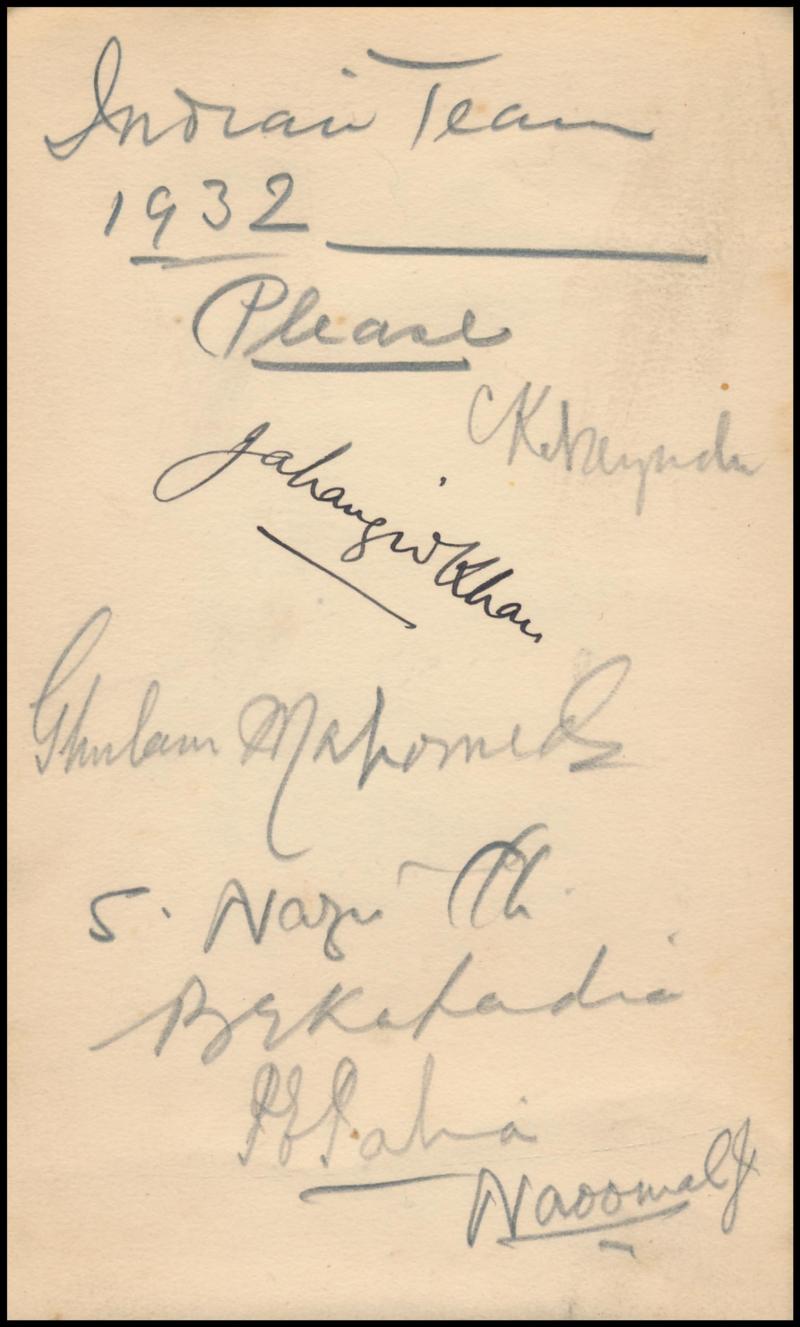 Indian Team
1932
Please
C K Nayudu
Jahangir Khan
Ghulam Mahomed
S. Nazir Ali
B E Kapadia
P E Palia
Naoomal J